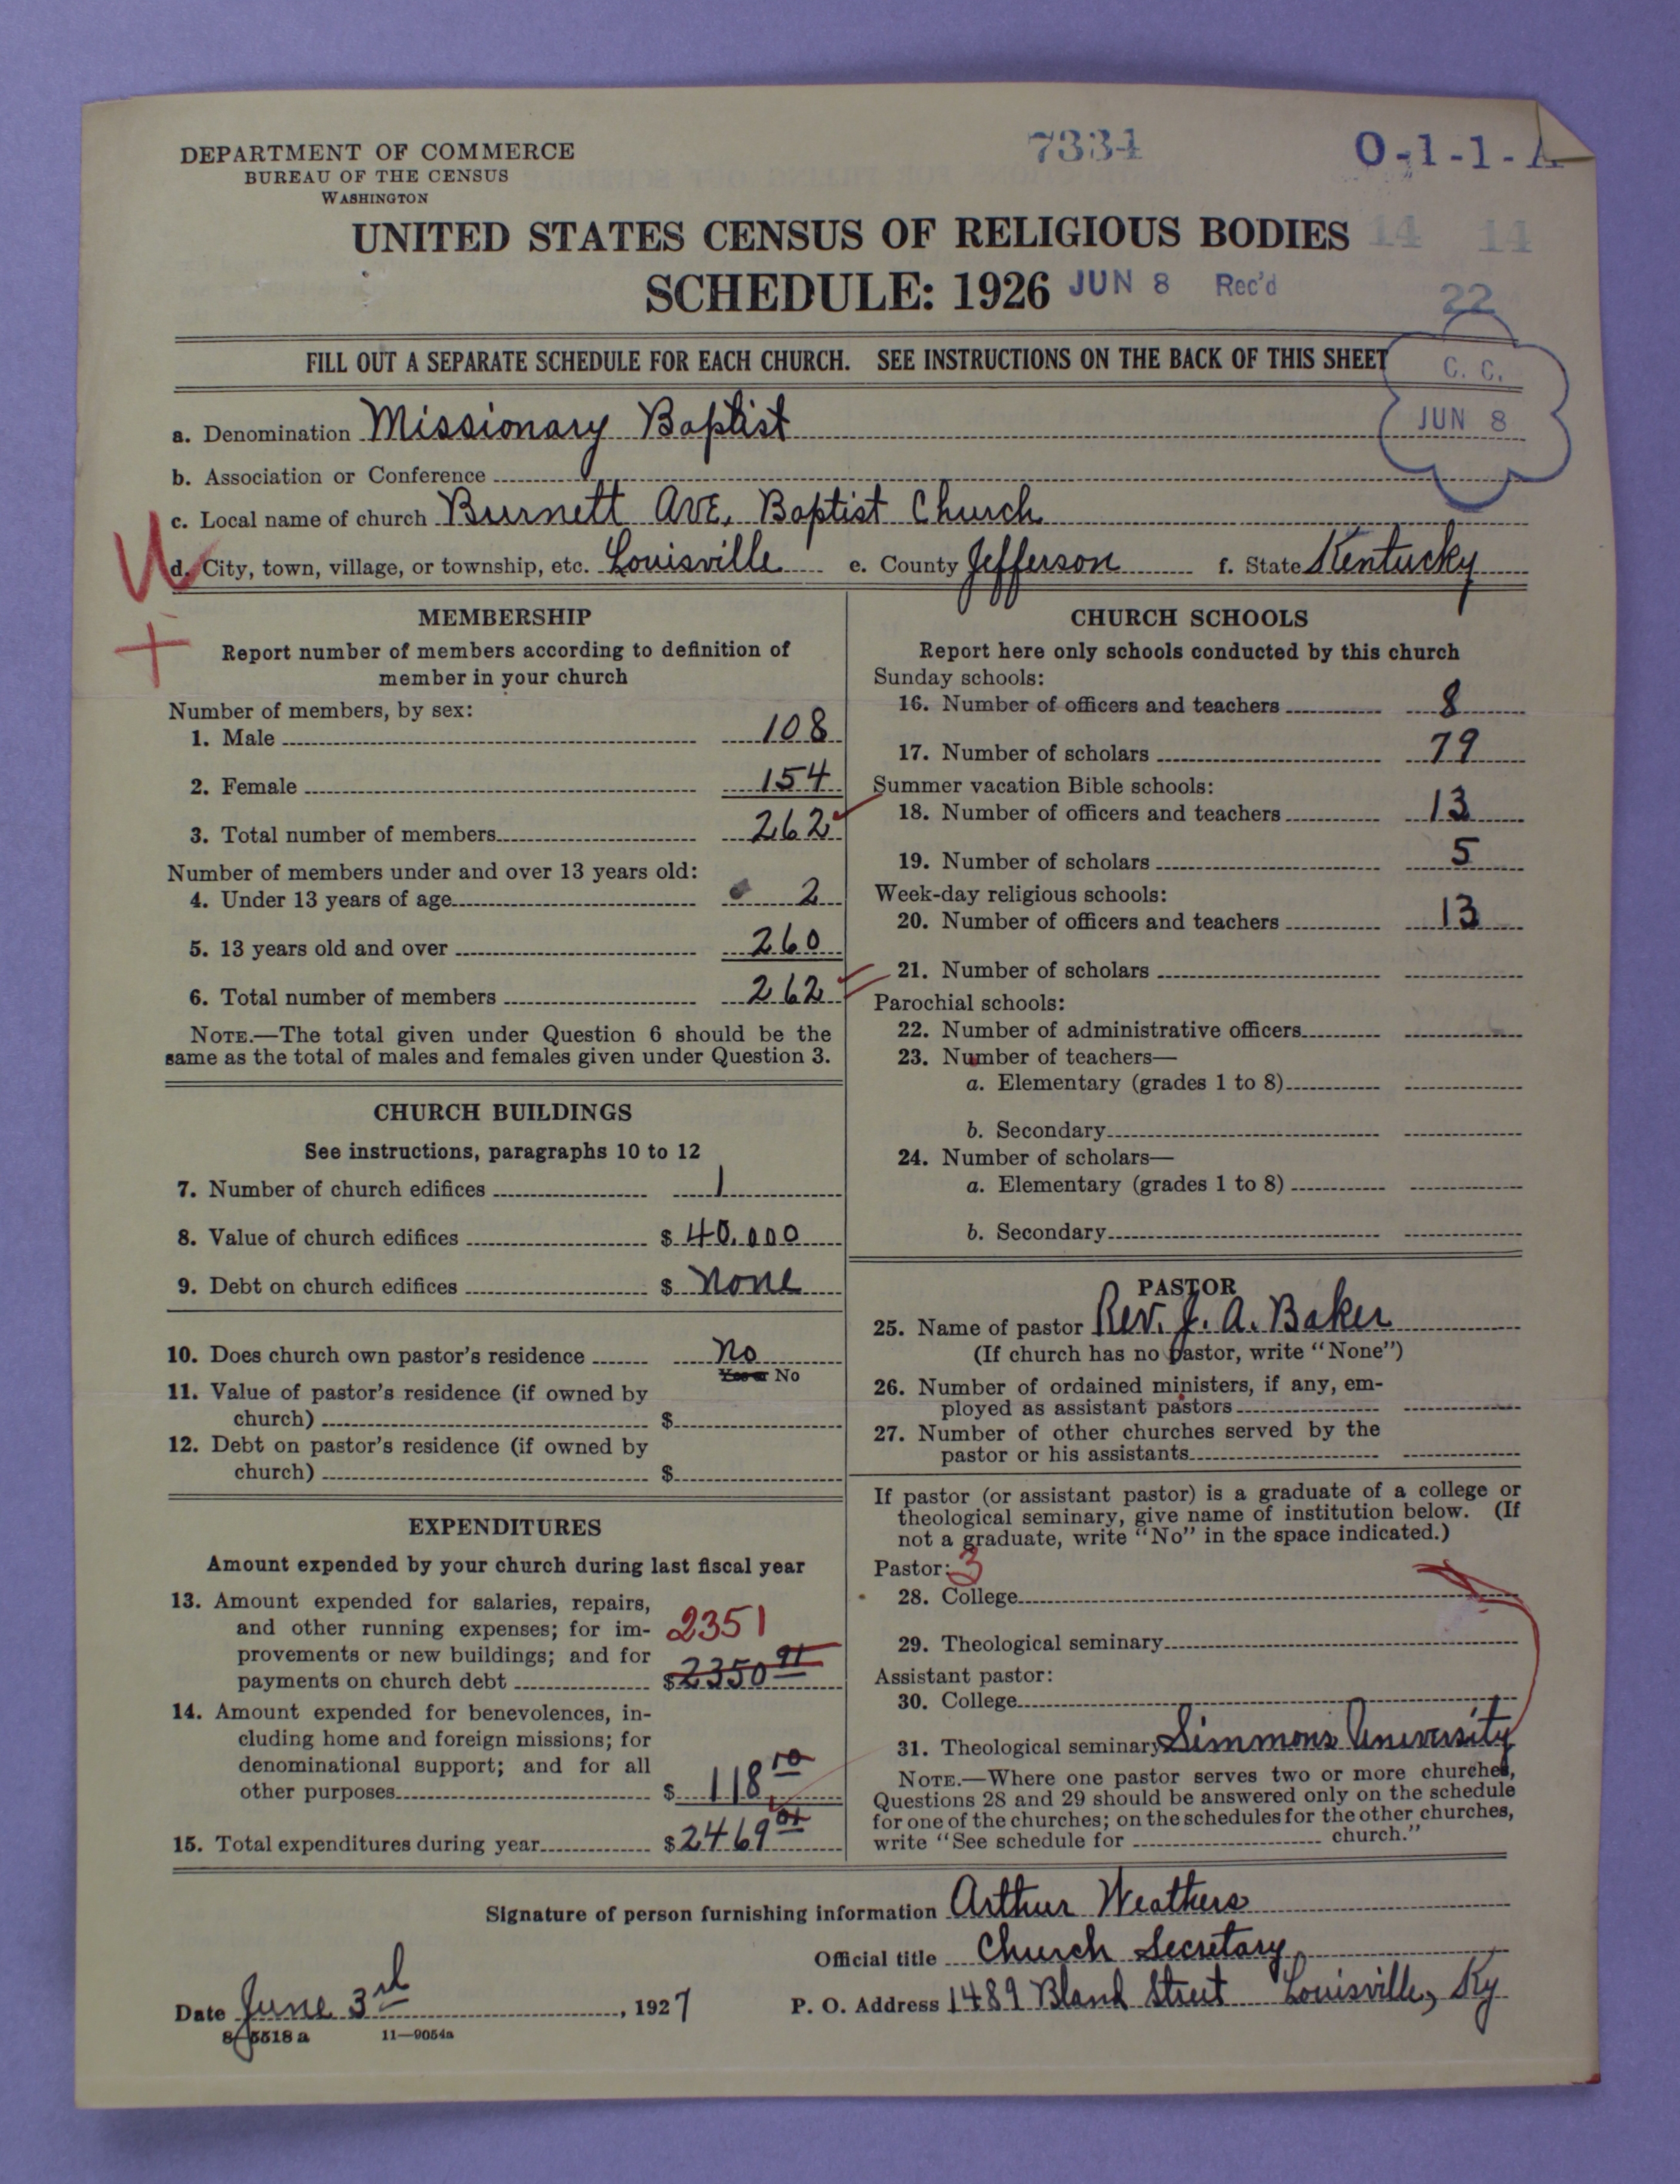 DEPARTMENT OF COMMERCE
BUREAU OF THE CENSUS
WASHINGTON
7334
O-1-1-A
UNITED STATES CENSUS OF RELIGIOUS BODIES
14 11
SCHEDULE: 1926
JUN 8 Rec'd
22
FILL OUT A SEPARATE SCHEDULE FOR EACH CHURCH. SEE INSTRUCTIONS ON THE BACK OF THIS SHEET
C. C.
JUN 8
a. Denomination Missionary Baptist
b. Association or Conference
c. Local name of church Burnett Ave, Baptist Church
d. City, town, village, or township, etc. Louisville e. County Jefferson f. State Kentucky
MEMBERSHIP
Report number of members according to definition of
member in your church
Number of members, by sex:
1. Male 108
2. Female 154
3. Total number of members 262
Number of members under and over 13 years old:
4. Under 13 years of age 2
5. 13 years old and over 260
6. Total number of members 262
NOTE.—The total given under Question 6 should be the
same as the total of males and females given under Question 3.
CHURCH BUILDINGS
See instructions, paragraphs 10 to 12
7. Number of church edifices 1
8. Value of church edifices $ 40,000
9. Debt on church edifices $ None
10. Does church own pastor's residence No
Yes or No
11. Value of pastor's residence (if owned by
church) $
12. Debt on pastor's residence (if owned by
church) $
EXPENDITURES
Amount expended by your church during last fiscal year
13. Amount expended for salaries, repairs,
and other running expenses; for im-
provements or new buildings; and for
payments on church debt
2351
$ 2350 91
14. Amount expended for benevolences, in-
cluding home and foreign missions; for
denominational support; and for all
other purposes $ 118 10
15. Total expenditures during year $ 2469 01
CHURCH SCHOOLS
Report here only schools conducted by this church
Sunday schools:
16. Number of officers and teachers 8
17. Number of scholars 79
Summer vacation Bible schools:
18. Number of officers and teachers 13
19. Number of scholars 5
Week-day religious schools:
20. Number of officers and teachers 13
21. Number of scholars
Parochial schools:
22. Number of administrative officers
23. Number of teachers—
a. Elementary (grades 1 to 8)
b. Secondary
24. Number of scholars—
a. Elementary (grades 1 to 8)
b. Secondary
PASTOR
25. Name of pastor Rev. J. A. Baker
(If church has no pastor, write "None")
26. Number of ordained ministers, if any, em-
ployed as assistant pastors
27. Number of other churches served by the
pastor or his assistants
If pastor (or assistant pastor) is a graduate of a college or
theological seminary, give name of institution below. (If
not a graduate, write "No" in the space indicated.)
Pastor: 3
28. College
29. Theological seminary
Assistant pastor:
30. College
31. Theological seminary Simmons University
NOTE.—Where one pastor serves two or more churches,
Questions 28 and 29 should be answered only on the schedule
for one of the churches; on the schedules for the other churches,
write "See schedule for church."
Signature of person furnishing information Arthur Weathers
Official title Church Secretary
Date June 3rd, 1927 P. O. Address 1489 Bland Street Louisville, Ky
8-5518 a 11—9054a